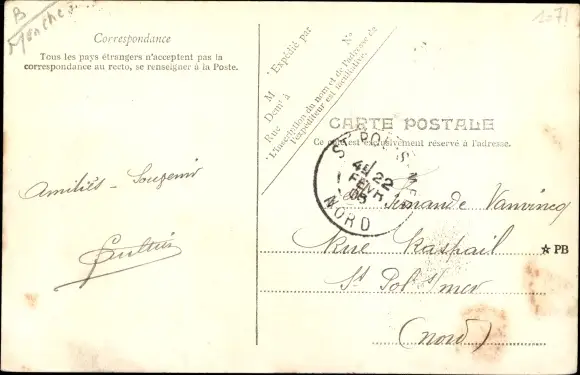 B
Manche
1071
Correspondance
Tous les pays étrangers n'acceptent pas la
correspondance au recto, se renseigner à la Poste.
Amitiés - Souvenir
M
Expédié par
Demt à
Rue
No
L'inscription du nom et de l'adresse de
l'expéditeur est facultative.
CARTE POSTALE
Ce côté est exclusivement réservé à l'adresse.
ST POL-S-MER
4E 22
FEVR
05
NORD
Fernande Vanvincq
Rue Raspail
★ PB
St Pol s/mer
(Nord)